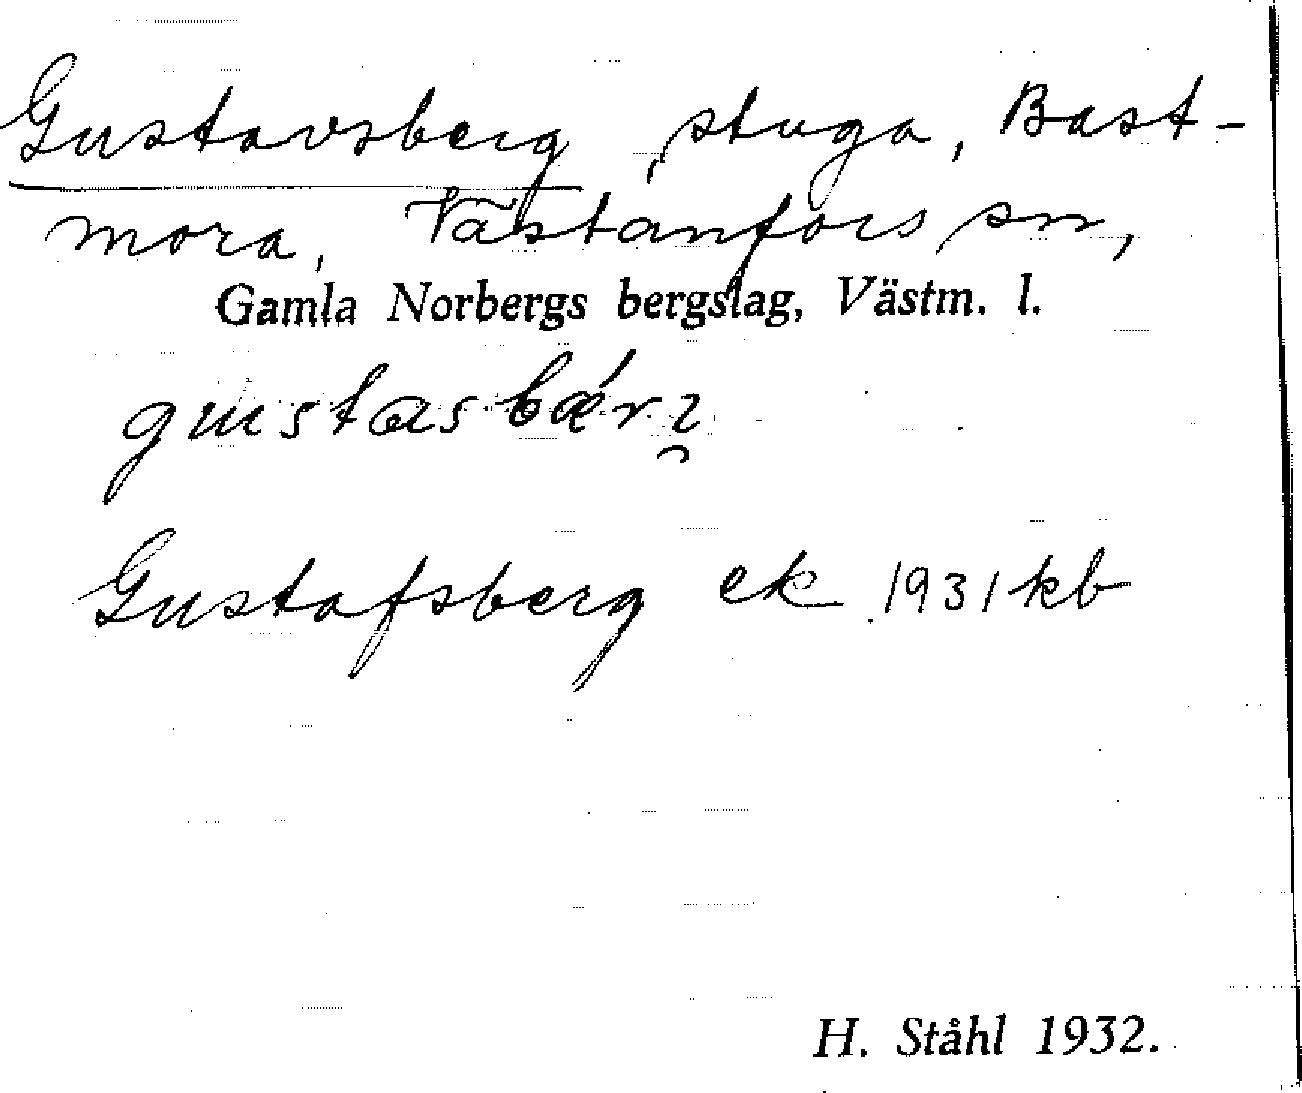 Gustavsberg, stuga, Bast-
mora, Västanfors sn,
Gamla Norbergs bergslag, Västm. l.
Gustafsberg ek 1931 kb
H. Ståhl 1932.